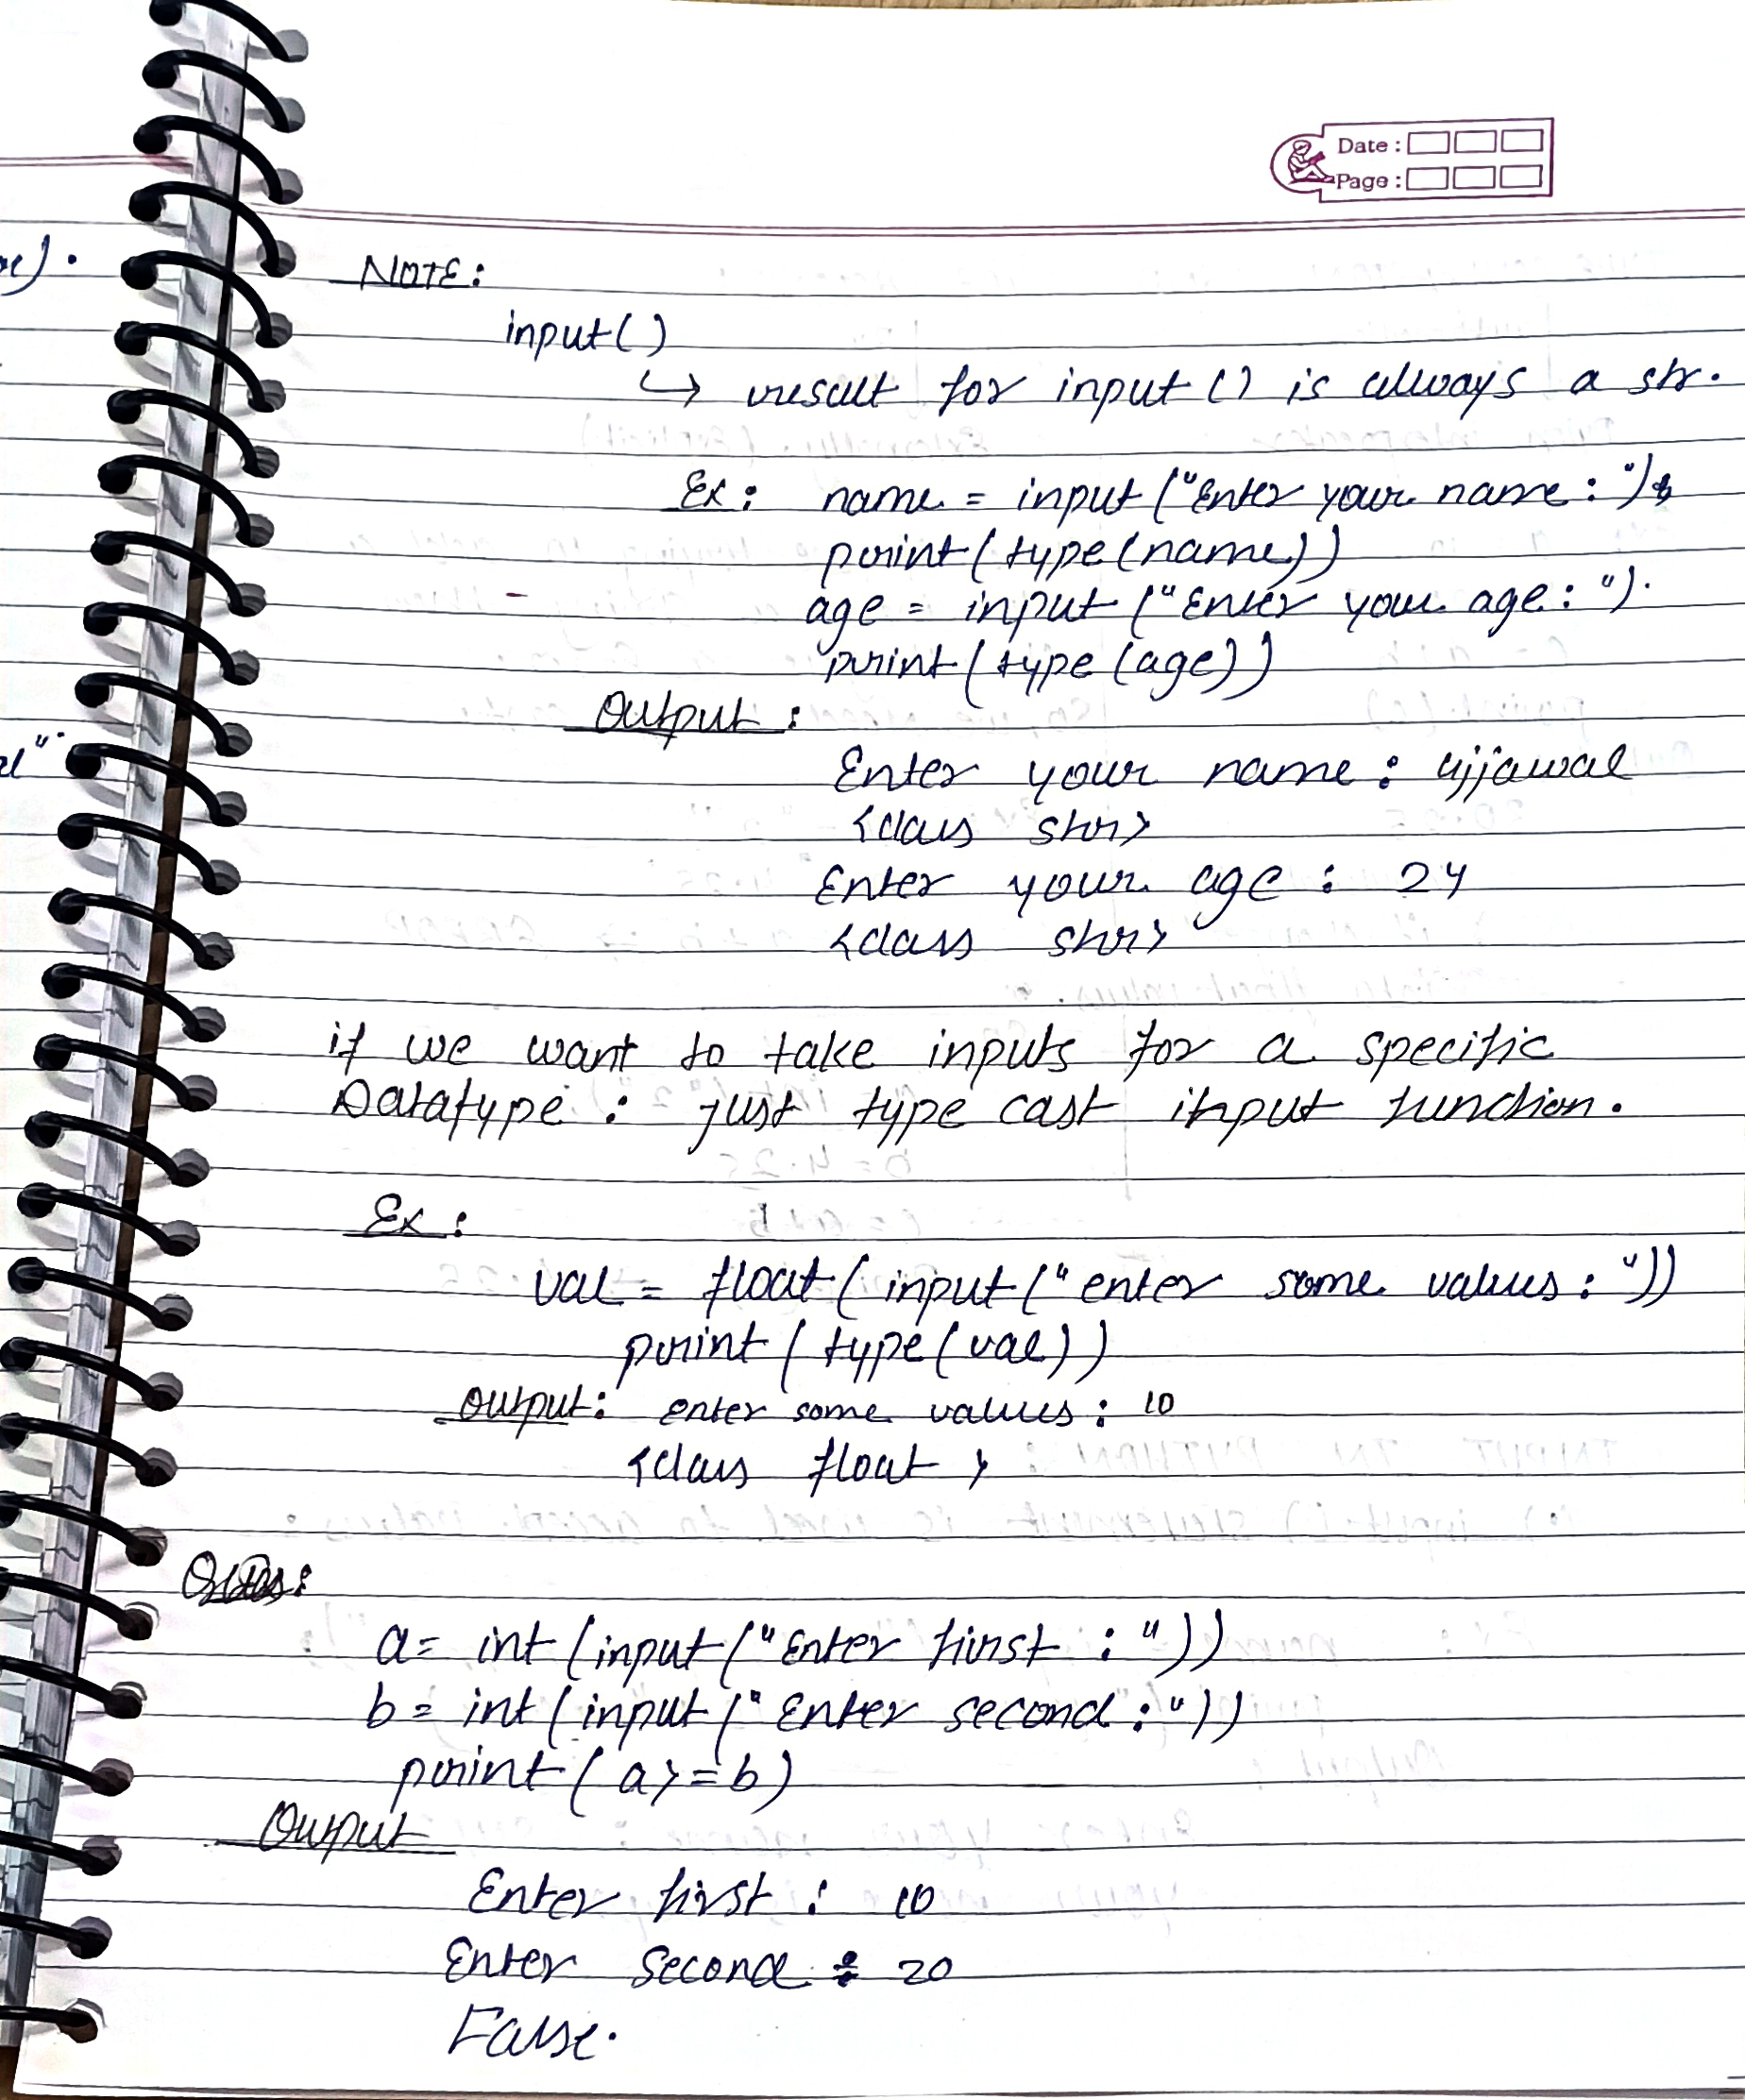 Date :
Page :
e).
NOTE:
input()
↪ result for input () is always a str.
Ex: name = input ("Enter your name : ")
print (type (name))
age = input ("Enter your age : ").
print (type (age))
Output :
Enter your name : ujjawal
<class str>
Enter your age : 24
<class str>
if we want to take inputs for a specific
Datatype : just type cast input function.
Ex :
val = float (input (" enter some values : "))
print ( type (val))
output: enter some values : 10
<class float >
Ques:
a= int (input (" Enter first : "))
b = int (input (" Enter second : "))
print ( a>=b)
Output
Enter first : 10
Enter second : 20
False.